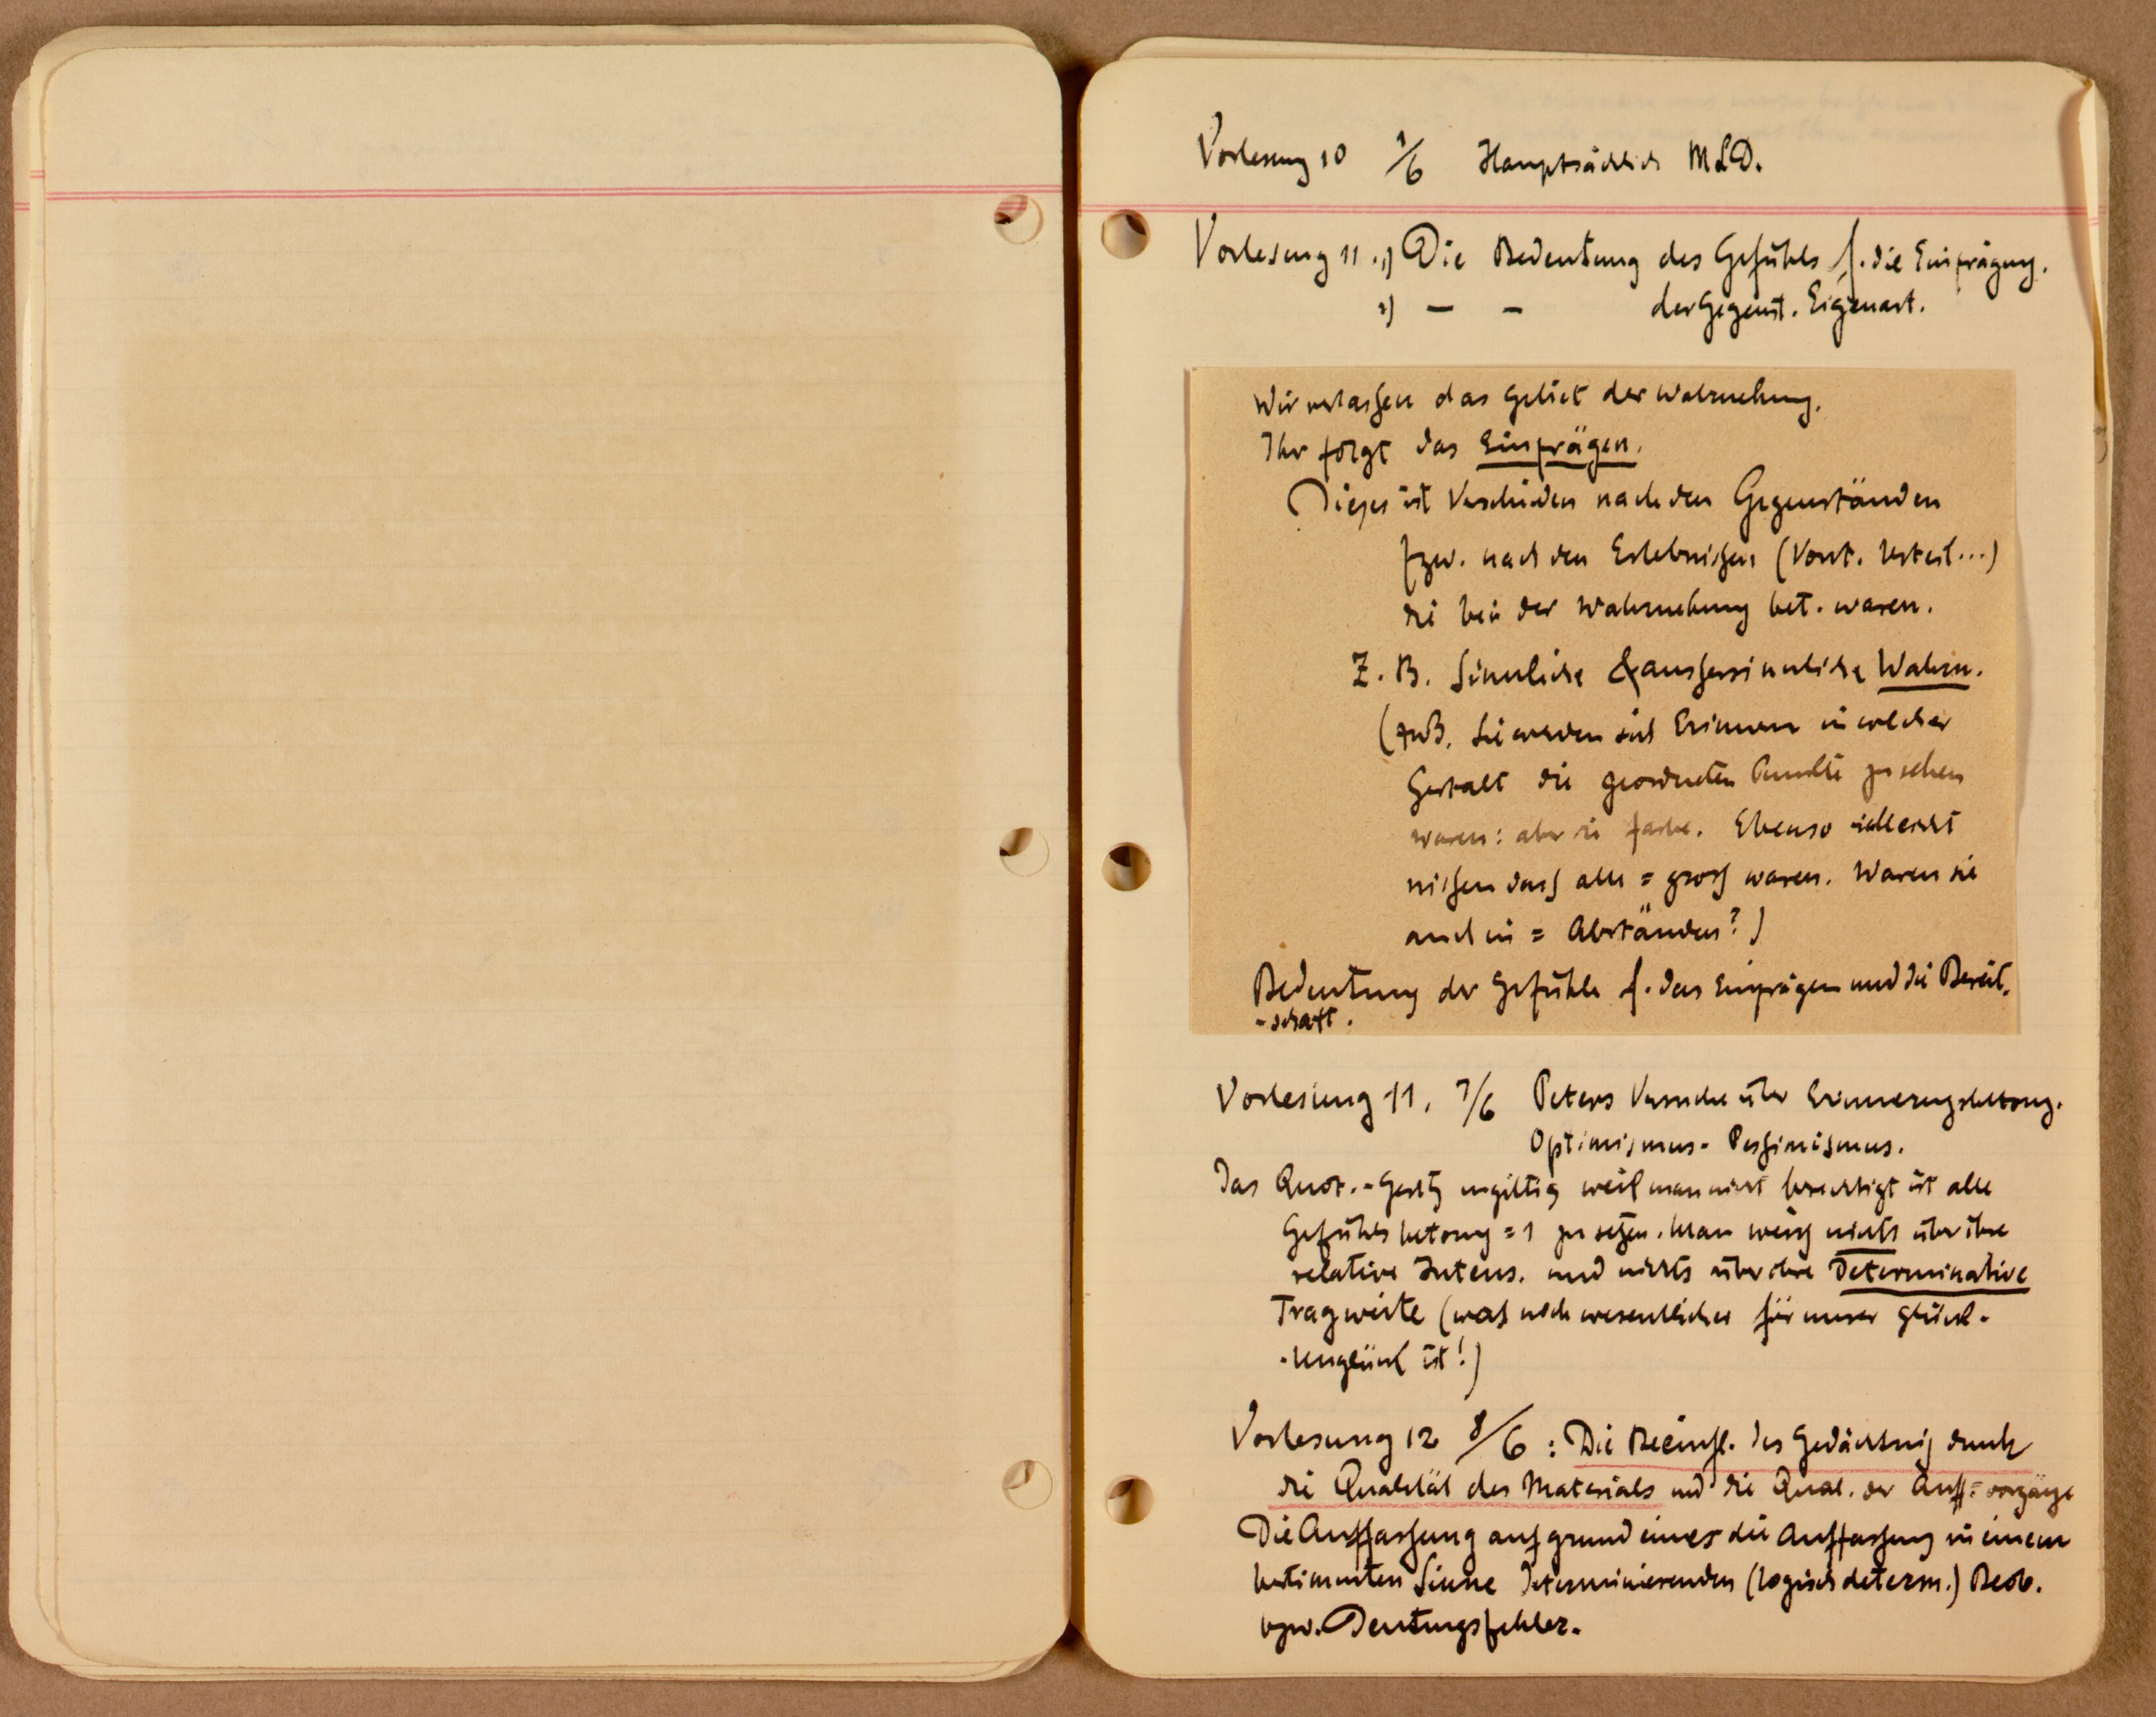 Vorlesung 10 1/6 Hauptsächlich M.L.D.
Vorlesung 11. 1) Die Bedeutung des Gefühls f. die Einprägung.
2) — — der Gegenst. Eigenart.
Wir verlassen das Gebiet der Wahrnehmung.
Ihr folgt das Einprägen.
Dieses ist Verschieden nach den Gegenständen
bzw. nach den Erlebnissen (Vorst. Urteil...)
die bei der Wahrnehmung bet. waren.
Z. B. Sinnliche & aussersinnliche Wahrn.
(ZwB. Sie werden sich Erinnern in welcher
Gestalt die geordneten Punkte zu sehen
waren: aber die Farbe. Ebenso vielleicht
wissen dass alle = gross waren. Waren sie
auch in = Abständen?)
Bedeutung der Gefühle f. das Einprägen und die Bereit-
-schaft.
Vorlesung 11. 7/6 Peters Versuche über Erinnerungsbetong.
Optimismus - Pessimismus.
Das Quot.-Gesetz ungiltig weil man nicht berechtigt ist alle
Gefühlsbetong = 1 zu setzen. Man weiss nichts über ihre
relative Intens. und nichts über ihre Determinative
Tragweite (was noch wesentlicher für unser Glück-
-Unglück ist!)
Vorlesung 12 8/6: Die Beeinfl. des Gedächtniss durch
die Qualität des Materials und die Qual. der Auff=vorgänge
Die Auffassung auf grund eines die Auffassung in einem
bestimmten Sinne Determinierenden (logisch determ.) Beob.
bzw. Deutungsfehler.